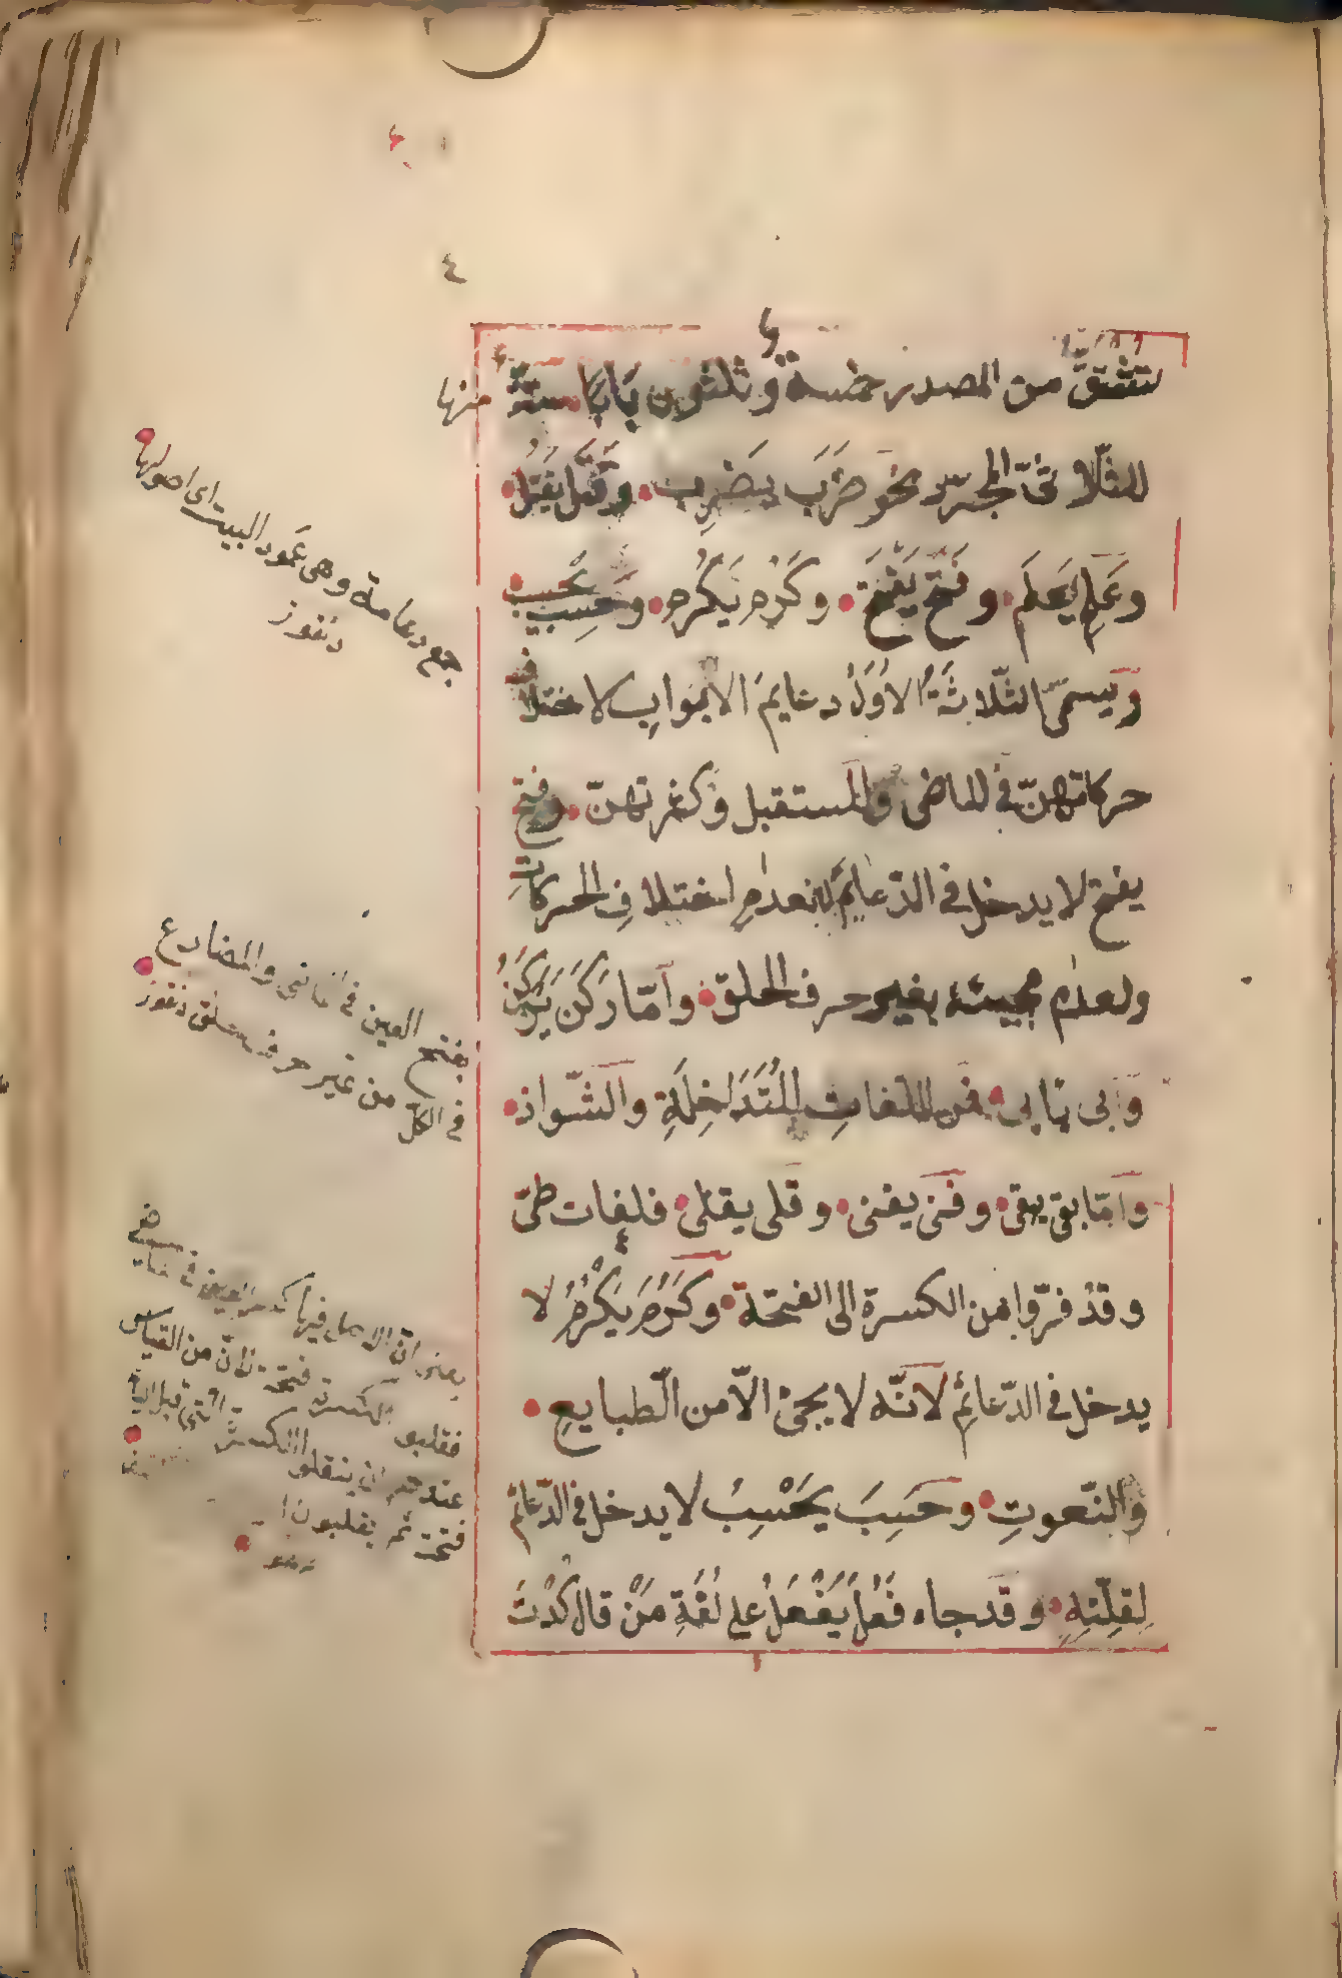 ٤
تشتقّ من المصدر خمسة وثلثون بَابًا ستة منها
للثّلاثىّ المجرّد نحو ضَرَبَ يَضرِب وقَتَل يَقتُل
وعَلِم يَعلَم وفَتَح يَفْتَح وكَرُم يَكْرُم وحَسِب يَحْسِب
ويسمّى الثّلاثَةُ الاُوَلُ دعايمَ الابوابِ لاختلاف
حركاتهنّ فى الماضى والمستقبل وكثرتهنّ وفتح
يفتح لا يدخل فى الدّعايم لانعدام اختلافِ الحركاتِ
ولعدم مجيئه بغير حرف الحلق وامّا رَكَنَ يَرْكَنُ
وَابى يَابى فمن اللغاتِ المُتَدَاخِلَةِ والشّواذ
وامّا بقى يبقى وفَنى يفنى وقلى يقلى فلغات طىّ
وقدْ فرّوا من الكسرة الى الفتحة وكَرُمَ يَكْرُمُ لا
يدخل فى الدّعائمِ لانّه لا يجئ الّا من الطبايعِ
والنّعوتِ وحَسِبَ يَحْسِبُ لا يدخل فى الدّعائم
لِقلّتِهِ وقدجاء فَعُلَ يَفْعَلُ على لُغَةِ مَنْ قال كُدْتَ
جمع دعامة وهى عمود البيت اى اصولها
دنقوز
بفتح العين فى الماضى والمضارع
فى الكلّ من غير حرف حلق دنقوز
يعنى انّ الاصل فيها كسر العين فى ماضى
فقلبو الكسرة فتحة لانّ من القياس
عندهم ان ينقلوا الكسرة التى قبل الياء
فتحة ثم يقلبون